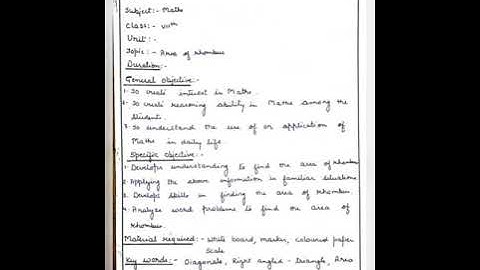 Subject:- Maths
Class:- VIIIth
Unit:-
Topic:- Area of rhombus
Duration:-
General Objective:-
1. To create interest in Maths.
2. To create reasoning ability in Maths among the student.
3. To understand the use of or application of Maths in daily life.
Specific Objective:-
1. Develops understanding to find the area of rhombus
2. Applying the above information in familiar situations
3. Develops skills in finding the area of Rhombus.
4. Analyze word problems to find the area of Rhombus.
Material required:- White board, marker, coloured paper
Scale
Key words:- Diagonals, Right angled - triangle, Area